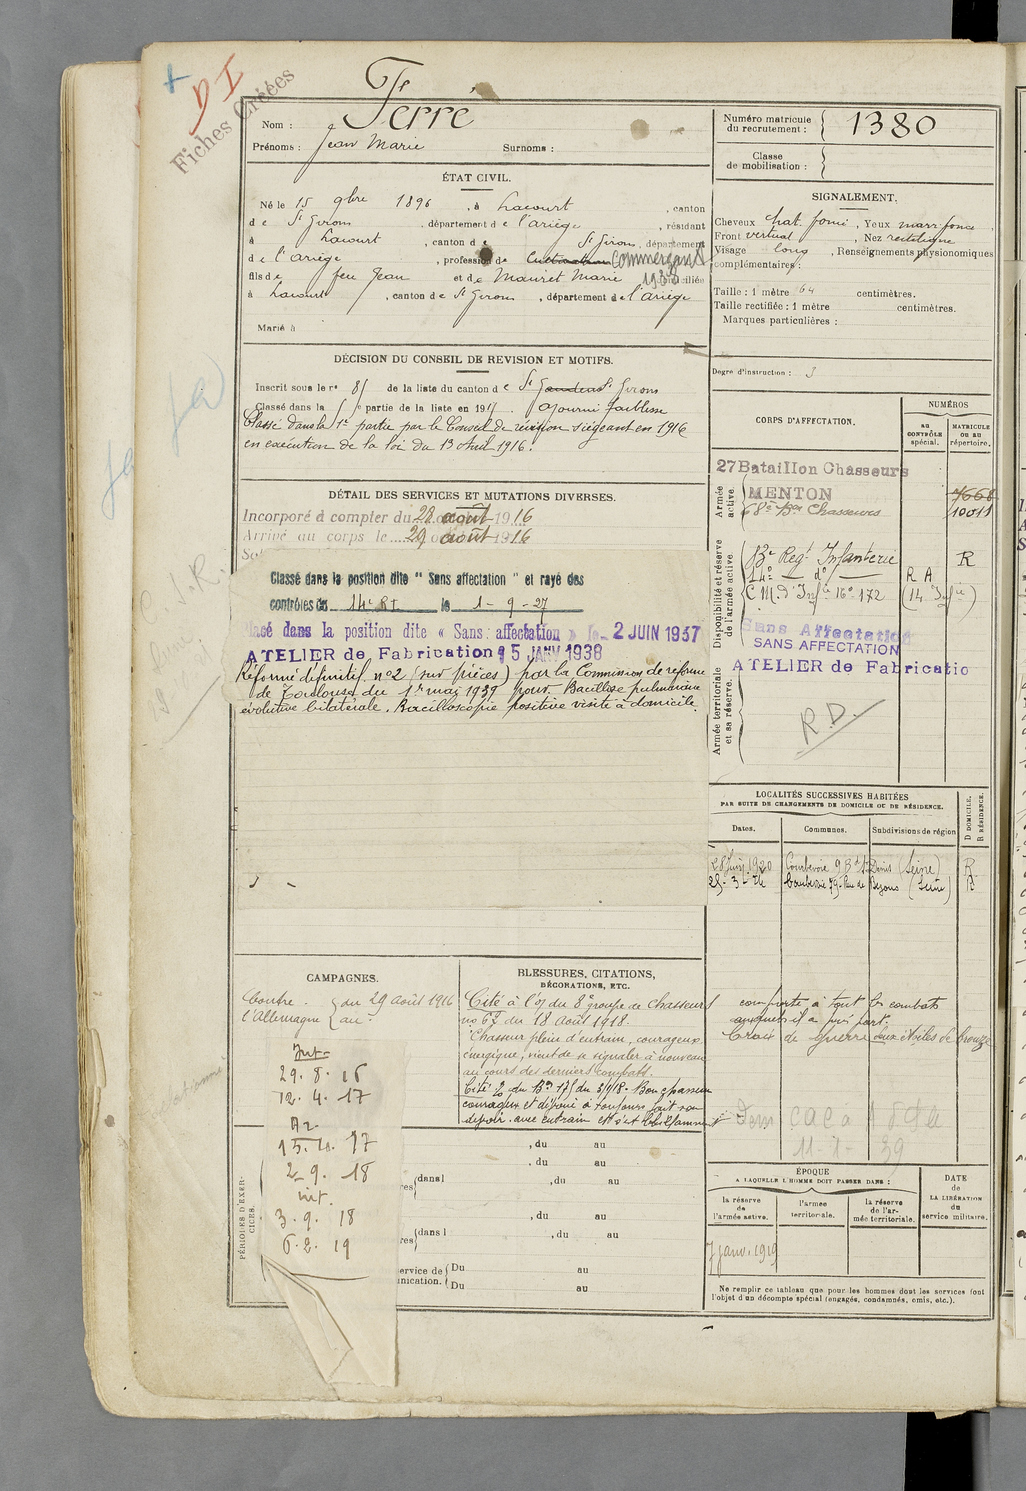 +
D I
Fiches Créées
Nom : Ferré
Prénoms : Jean Marie Surnoms :
Numéro matricule du recrutement : 1380
Classe de mobilisation :
ÉTAT CIVIL.
Né le 15 9bre 1896, à Lacourt, canton
de St Girons, département de l'ariège, résidant
à Lacourt, canton de St Girons, département
de l'Ariège, profession de Cultivateur Commerçant
1930
fils de feu Jean et de Mauret Marie domiciliée
à Lacourt, canton de St Girons, département de l'ariège
Marié à
SIGNALEMENT.
Cheveux chat. foncé, Yeux marr foncé,
Front vertical, Nez rectiligne
Visage long, Renseignements physionomiques
complémentaires :
Taille : 1 mètre 64 centimètres.
Taille rectifiée : 1 mètre centimètres.
Marques particulières :
Degré d'instruction : 3
DÉCISION DU CONSEIL DE REVISION ET MOTIFS.
Inscrit sous le no 85 de la liste du canton de St Gaudens St Girons
Classé dans la 5e partie de la liste en 1915. Ajourné faiblesse
Classé dans la 1e partie par le Conseil de révision siégeant en 1916
en exécution de la loi du 13 Avril 1916.
DÉTAIL DES SERVICES ET MUTATIONS DIVERSES.
Incorporé à compter du 28 août 1916
Arrivé au corps le 29 août 1916
Classé dans la position dite "Sans affectation" et rayé des
contrôles du 14e RI le 1-9-27
Placé dans la position dite « Sans affectation » le 2 JUIN 1937
ATELIER de Fabrication 15 JANV 1938
Réformé définitif no 2 (sur pièces) par la Commission de réforme
de Toulouse du 1er mai 1939 pour. Bacillose pulmonaire
évolutive bilatérale. Bacilloscopie positive visite à domicile.
CORPS D'AFFECTATION.
NUMÉROS
AU CONTRÔLE spécial.
MATRICULE OU AU répertoire.
Armée active.
27 Bataillon Chasseurs
MENTON
7668
68e Bon Chasseurs 10011
Disponibilité et réserve de l'armée active.
83e Regt Infanterie R
14e — do —
R A
C M. d'Infie 16e-172 (14 Infie)
Sans Affectation
SANS AFFECTATION
ATELIER de Fabricatio
Armée territoriale et sa réserve.
R.D.
LOCALITÉS SUCCESSIVES HABITÉES
PAR SUITE DE CHANGEMENTS DE DOMICILE OU DE RÉSIDENCE.
Dates. Communes. Subdivisions de région
D DOMICILE. R RÉSIDENCE.
1920 Courbevoie 9 Bd St Denis (Seine) R
25-3-26 Courbevoie 79 Rue de Bezons (Seine) R
CAMPAGNES.
Contre l'Allemagne du 29 Août 1916
au
Int
29. 8. 16
12. 4. 17
Ar
15. 10. 17
2_ 9. 18
int.
3. 9. 18
6. 2. 19
BLESSURES, CITATIONS,
DÉCORATIONS, ETC.
Cité à l'O/ du 8e groupe de chasseurs
no 67 du 18 Août 1918.
"Chasseur plein d'entrain, courageux
énergique, vient de se signaler à nouveau
au cours des derniers combats.
Cité O du Bon 175 du 3/9/18. Bon chasseur
courageux et dévoué a toujours fait son
devoir avec entrain et s'est brillamment
comporté à tout les combats
auxquels il a pris part.
Croix de guerre deux étoiles de bronze
PÉRIODES D'EXERCICES.
, du au
, du au
res dans l , du au
, du au
res dans l , du au
ervice de Du au
unication. Du au
ÉPOQUE
A LAQUELLE L'HOMME DOIT PASSER DANS :
la réserve de l'armée active.
l'armée territoriale.
la réserve de l'armée territoriale.
DATE de LA LIBÉRATION du service militaire.
7 janv. 1919
Ne remplir ce tableau que pour les hommes dont les services font
l'objet d'un décompte spécial (engagés, condamnés, omis, etc.).